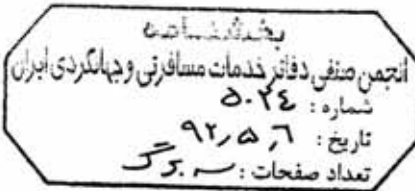 بخشنامه
انجمن صنفی دفاتر خدمات مسافرتی و جهانگردی ایران
شماره : ۵۰۲۴
تاریخ : ۹۲٫۵٫۶
تعداد صفحات : سه برگ